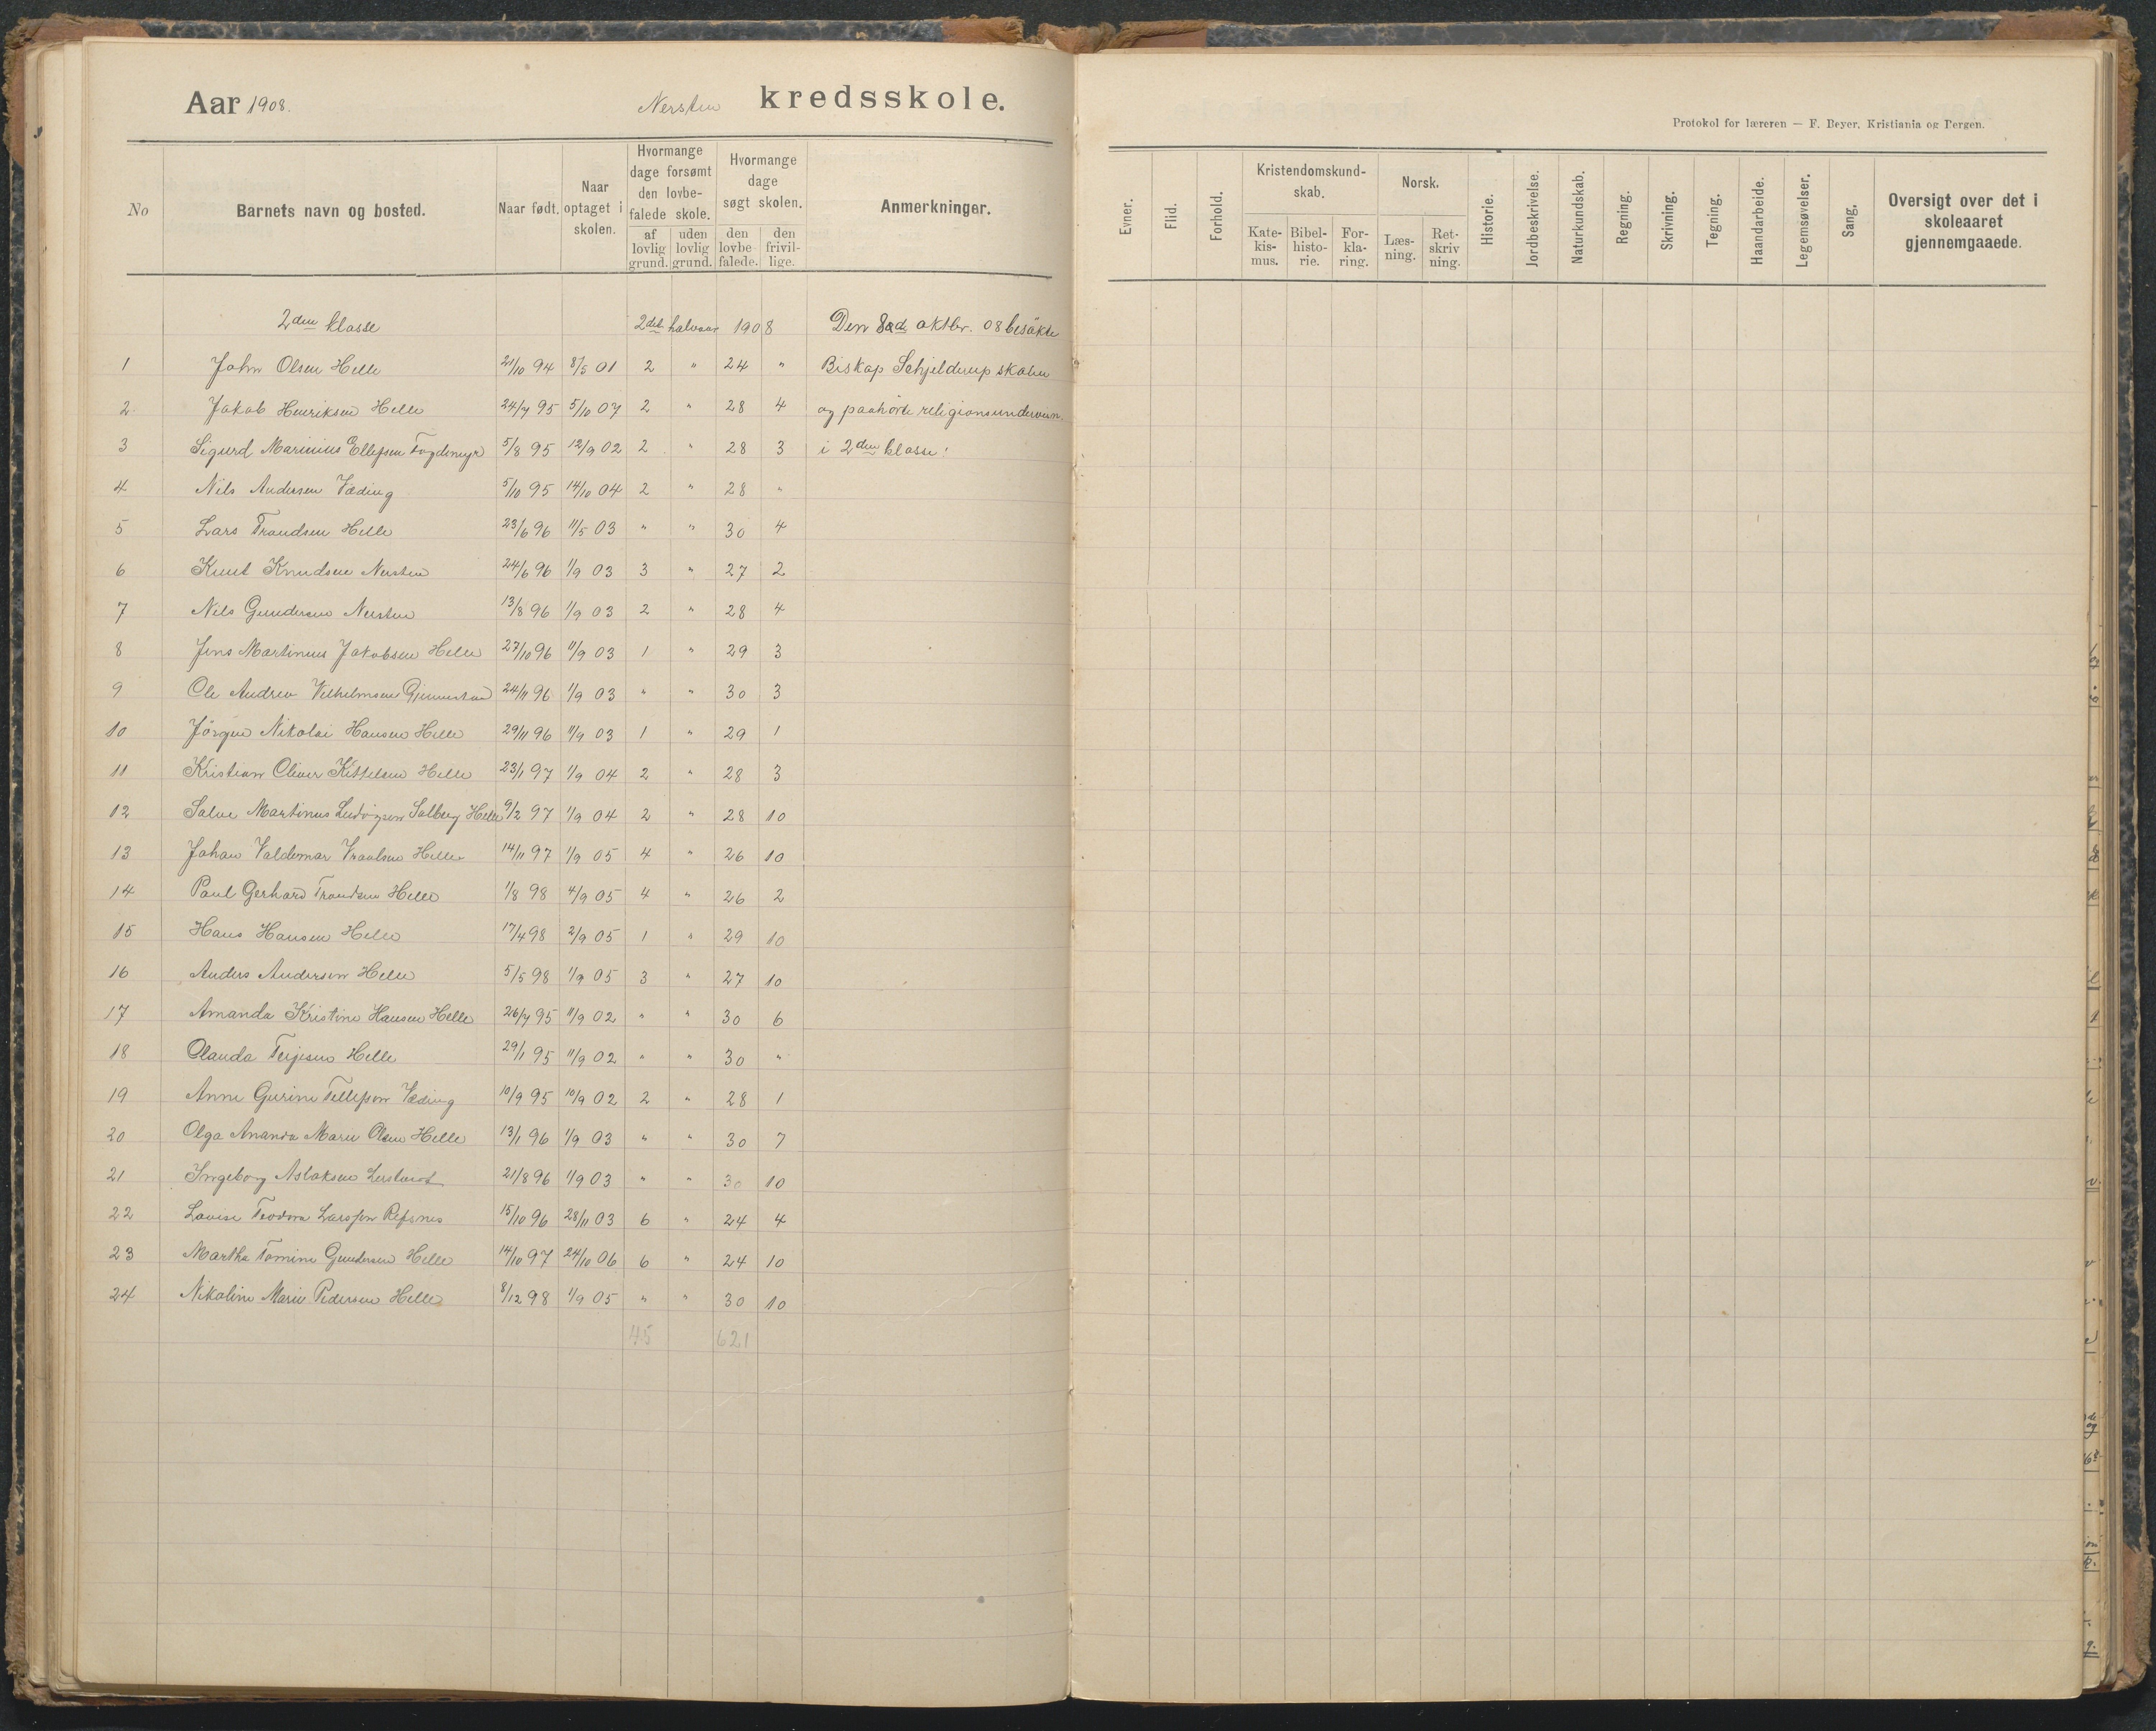 Aar 1908. Nersten kredsskole.
No
Barnets navn og bosted.
Naar født.
Naar optaget i skolen.
Hvormange dage forsømt den lovbefalede skole.
af lovlig grund.
uden lovlig grund.
Hvormange dage søgt skolen.
den lovbefalede.
den frivillige.
Anmerkninger.
2den klasse 2det halvaar 1908 Den 8de oktbr. 08 besökte
1 John Olsen Helle 21/10 94 8/5 01 2 " 24 " Biskop Schjelderup skolen
2 Jakob Henriksen Helle 24/7 95 5/10 07 2 " 28 4 og paahörte religionsundervisn.
3 Sigurd Marinius Ellefsen Fogdemyr 5/8 95 12/9 02 2 " 28 3 i 2den klasse!
4 Nils Andersen Væding 5/10 95 14/10 04 2 " 28 "
5 Lars Trondsen Helle 23/6 96 11/5 03 " " 30 4
6 Knut Knudsen Nersten 24/6 96 1/9 03 3 " 27 2
7 Nils Gundersen Nersten 13/8 96 1/9 03 2 " 28 4
8 Jens Martinius Jakobsen Helle 27/10 96 11/9 03 1 " 29 3
9 Ole Andrev Vilhelmsen 24/11 96 1/9 03 " " 30 3
10 Jörgen Nikolai Hansen Helle 29/11 96 11/9 03 1 " 29 1
11 Kristian Oliver Kittelsen Helle 23/1 97 1/9 04 2 " 28 3
12 Salve Martinus Ludvigsen Solberg Helle 9/2 97 1/9 04 2 " 28 10
13 Johan Valdemar Vraalsen Helle 14/11 97 1/9 05 4 " 26 10
14 Paul Gerhard Trondsen Helle 1/8 98 4/9 05 4 " 26 2
15 Hans Hansen Helle 17/4 98 2/9 05 1 " 29 10
16 Anders Andersen Helle 5/5 98 1/9 05 3 " 27 10
17 Amanda Kristine Hansen Helle 26/7 95 11/9 02 " " 30 6
18 Olanda Terjesen Helle 29/1 95 11/9 02 " " 30 "
19 Anne Gurine Tellefsen Væding 10/9 95 10/9 02 2 " 28 1
20 Olga Ananda Marie Olsen Helle 13/1 96 1/9 03 " " 30 7
21 Ingeborg Aslaksen 21/8 96 1/9 03 " " 30 10
22 Lovise Teodora Larssen Refsnes 15/10 96 28/11 03 6 " 24 4
23 Martha Tomine Gundersen Helle 14/10 97 24/10 06 6 " 24 10
24 Nikoline Marie Pedersen Helle 8/12 98 1/9 05 " " 30 10
45 621
Protokol for læreren — F. Beyer, Kristiania og Bergen.
Evner.
Flid.
Forhold.
Kristendomskundskab.
Katekismus.
Bibelhistorie.
Forklaring.
Norsk.
Læsning.
Retskrivning.
Historie.
Jordbeskrivelse.
Naturkundskab.
Regning.
Skrivning.
Tegning.
Haandarbeide.
Legemsøvelser.
Sang.
Oversigt over det i skoleaaret gjennemgaaede.